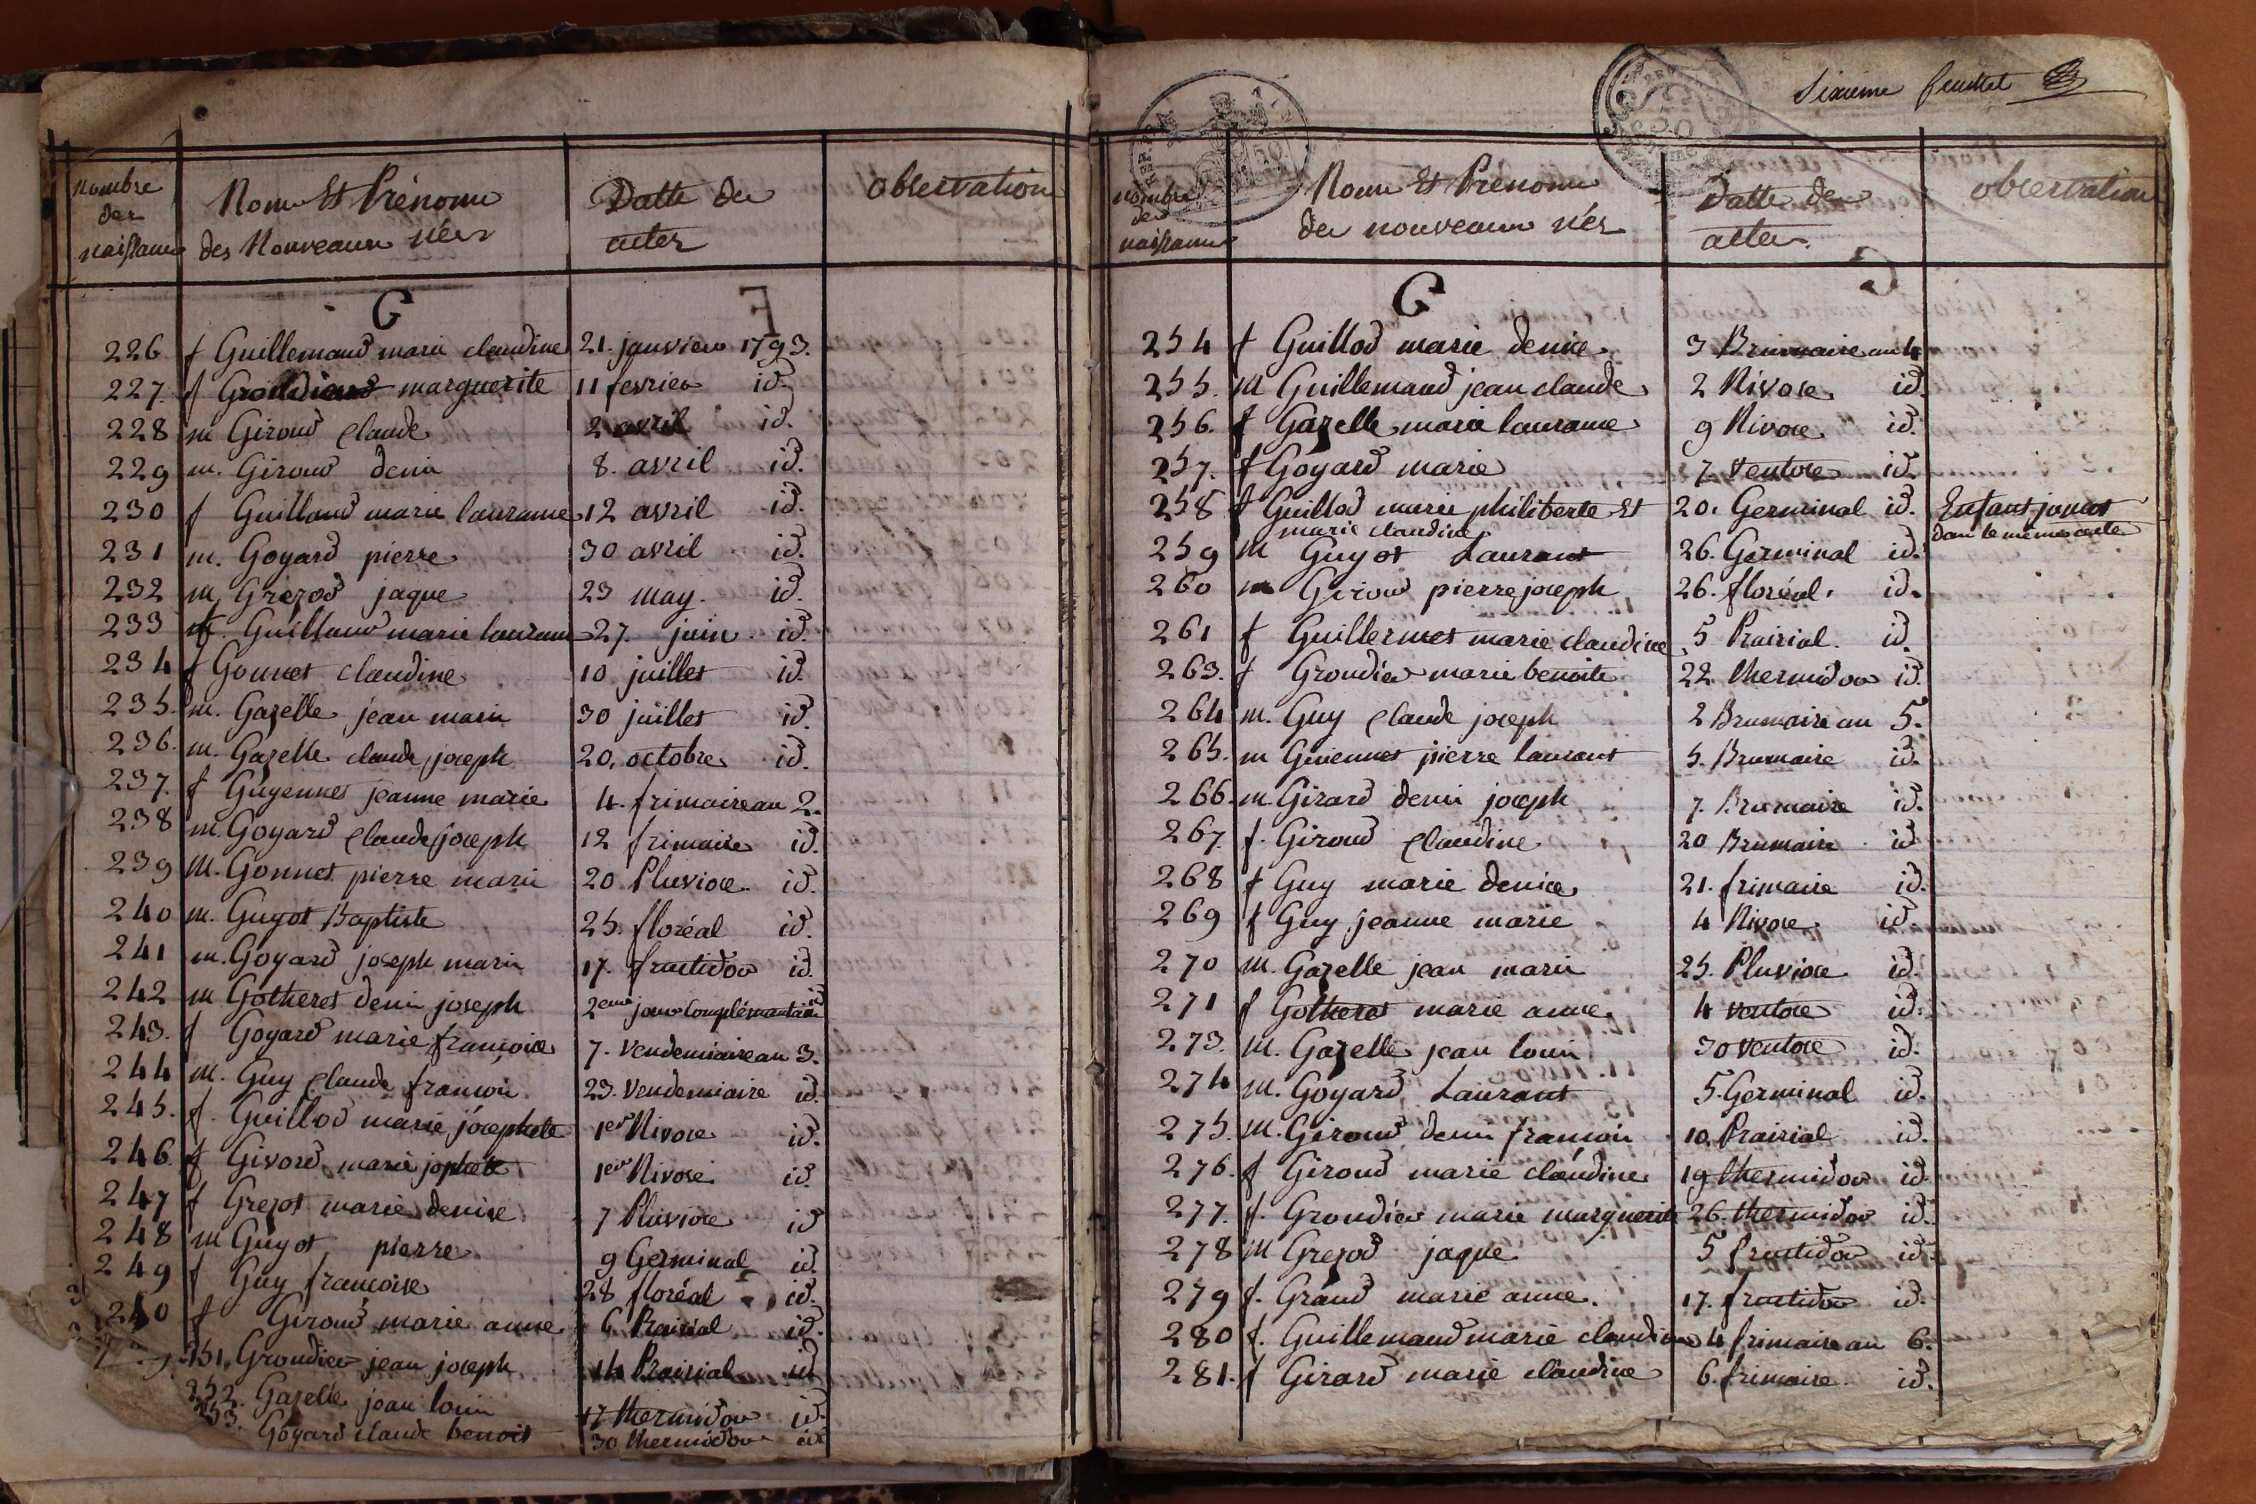 nombre
des
naissances
Nom Et Prénom
des Nouveaux Nés
Datte des
actes
observation
G
226 f Guillemaud marie claudine 21. janvier 1793.
227. f Groudier marguerite 11 fevrier id.
228 m Giroud Claude 2 avril id.
229 m. Giroud denis 8. avril id.
230 f Guillaud marie laurance 12 avril id.
231 m. Goyard pierre 30 avril id.
232 m Grezod jaque 23 may. id.
233 f. Guillaud marie lauranc 27. juin id.
234 f Gonnet claudine 10 juillet id.
235. m. Gazelle jean marie 30 juillet id.
236. m. Gazelle claude joseph 20. octobre id.
237. f Guyennet jeanne marie 4. frimaire an 2.
238 m. Goyard Claude joseph 12 frimaire id.
239 M. Gonnet pierre marie 20 Pluviose id.
240 m. Guyot Baptiste 25. floréal id.
241 m. Goyard joseph marie 17. fructidor id.
242 m Gotheret denis joseph 2eme jour complémantaire id
243. f Goyard marie francoise 7. vendemiaire an 3.
244 M. Guy Claude francois 23. vendemiaire id.
245. f. Guillod marie josephete 1er Nivose id.
246. f Givord marie jophete 1er Nivose id.
247 f Grezot marie denise 7 Pluviose id
248 m Guyot pierre 9 Germinal id.
249 f Guy francoise 28 floréal id.
240 f Giroud marie anne 6 Prairial id.
251. Groudier jean joseph 14 Prairial id
252. Gazelle jean louis 17 thermidor id.
253. Goyard claude benoit 30 thermidor id
Sixieme feuillet
nombre
des
naissances
Nom Et Prénom
des nouveaux nés
Datte des
actes.
observation
G
254 f Guillod marie denise 3 Brumaire an 4
255. m Guillemaud jean claude 2 Nivose id.
256. f Gazelle marie laurance 9 Nivose id.
257. f Goyard marie 7. ventose id.
258 f Guillod marie philiberte Et 20. Germinal id. Enfans jumot
marie claudine dans le meme acte
259 M Guyot Laurant 26. Germinal id.
260 m Giroud pierre joseph 26. floréal. id.
261 f Guillermet marie claudine 5 Prairial. id.
263. f Groudier marie benoite 22. thermidor id.
264 m. Guy Claude joseph 2 Brumaire an 5.
265. m Guiennet pierre laurant 5. Brumaire id.
266. m. Girard denis joseph 7. Brumaire id.
267. f. Giroud Claudine 20 Brumaire id
268 f Guy marie denise 21. frimaire id.
269 f Guy jeanne marie 4 Nivose id.
270 M. Gazelle jean marie 25. Pluviose id.
271 f Gotheret marie anne 4 ventose id.
273. M. Gazelle jean louis 30 ventose id.
274 m. Goyard Laurant 5. Germinal id.
275. M. Giroud denis francois 10. Prairial id.
276. f Giroud marie claudine 19 thermidor id.
277. f. Groudier marie marguerite 26. thermidor id.
278 M Grezod jaque 5 fructidor id.
279 f. Graud marie anne. 17. fructidor id.
280 f. Guillemaud marie claudine 4 frimaire an 6.
281. f Girard marie claudine 6. frimaire id.